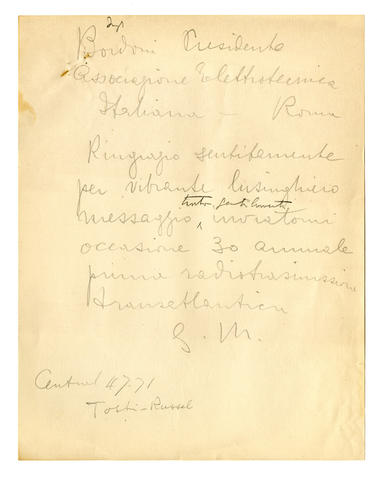 Ing
Bordoni Presidente
Associazione Elettrotecnica
Italiana — Roma
Ringrazio sentitamente
per vibrante lusinghiero
tanto gentilmente
messaggio inviatomi
occasione 30 annuale
prima radiotrasmissione
transatlantica
G. M.
Central 4771
Tosti-Russel